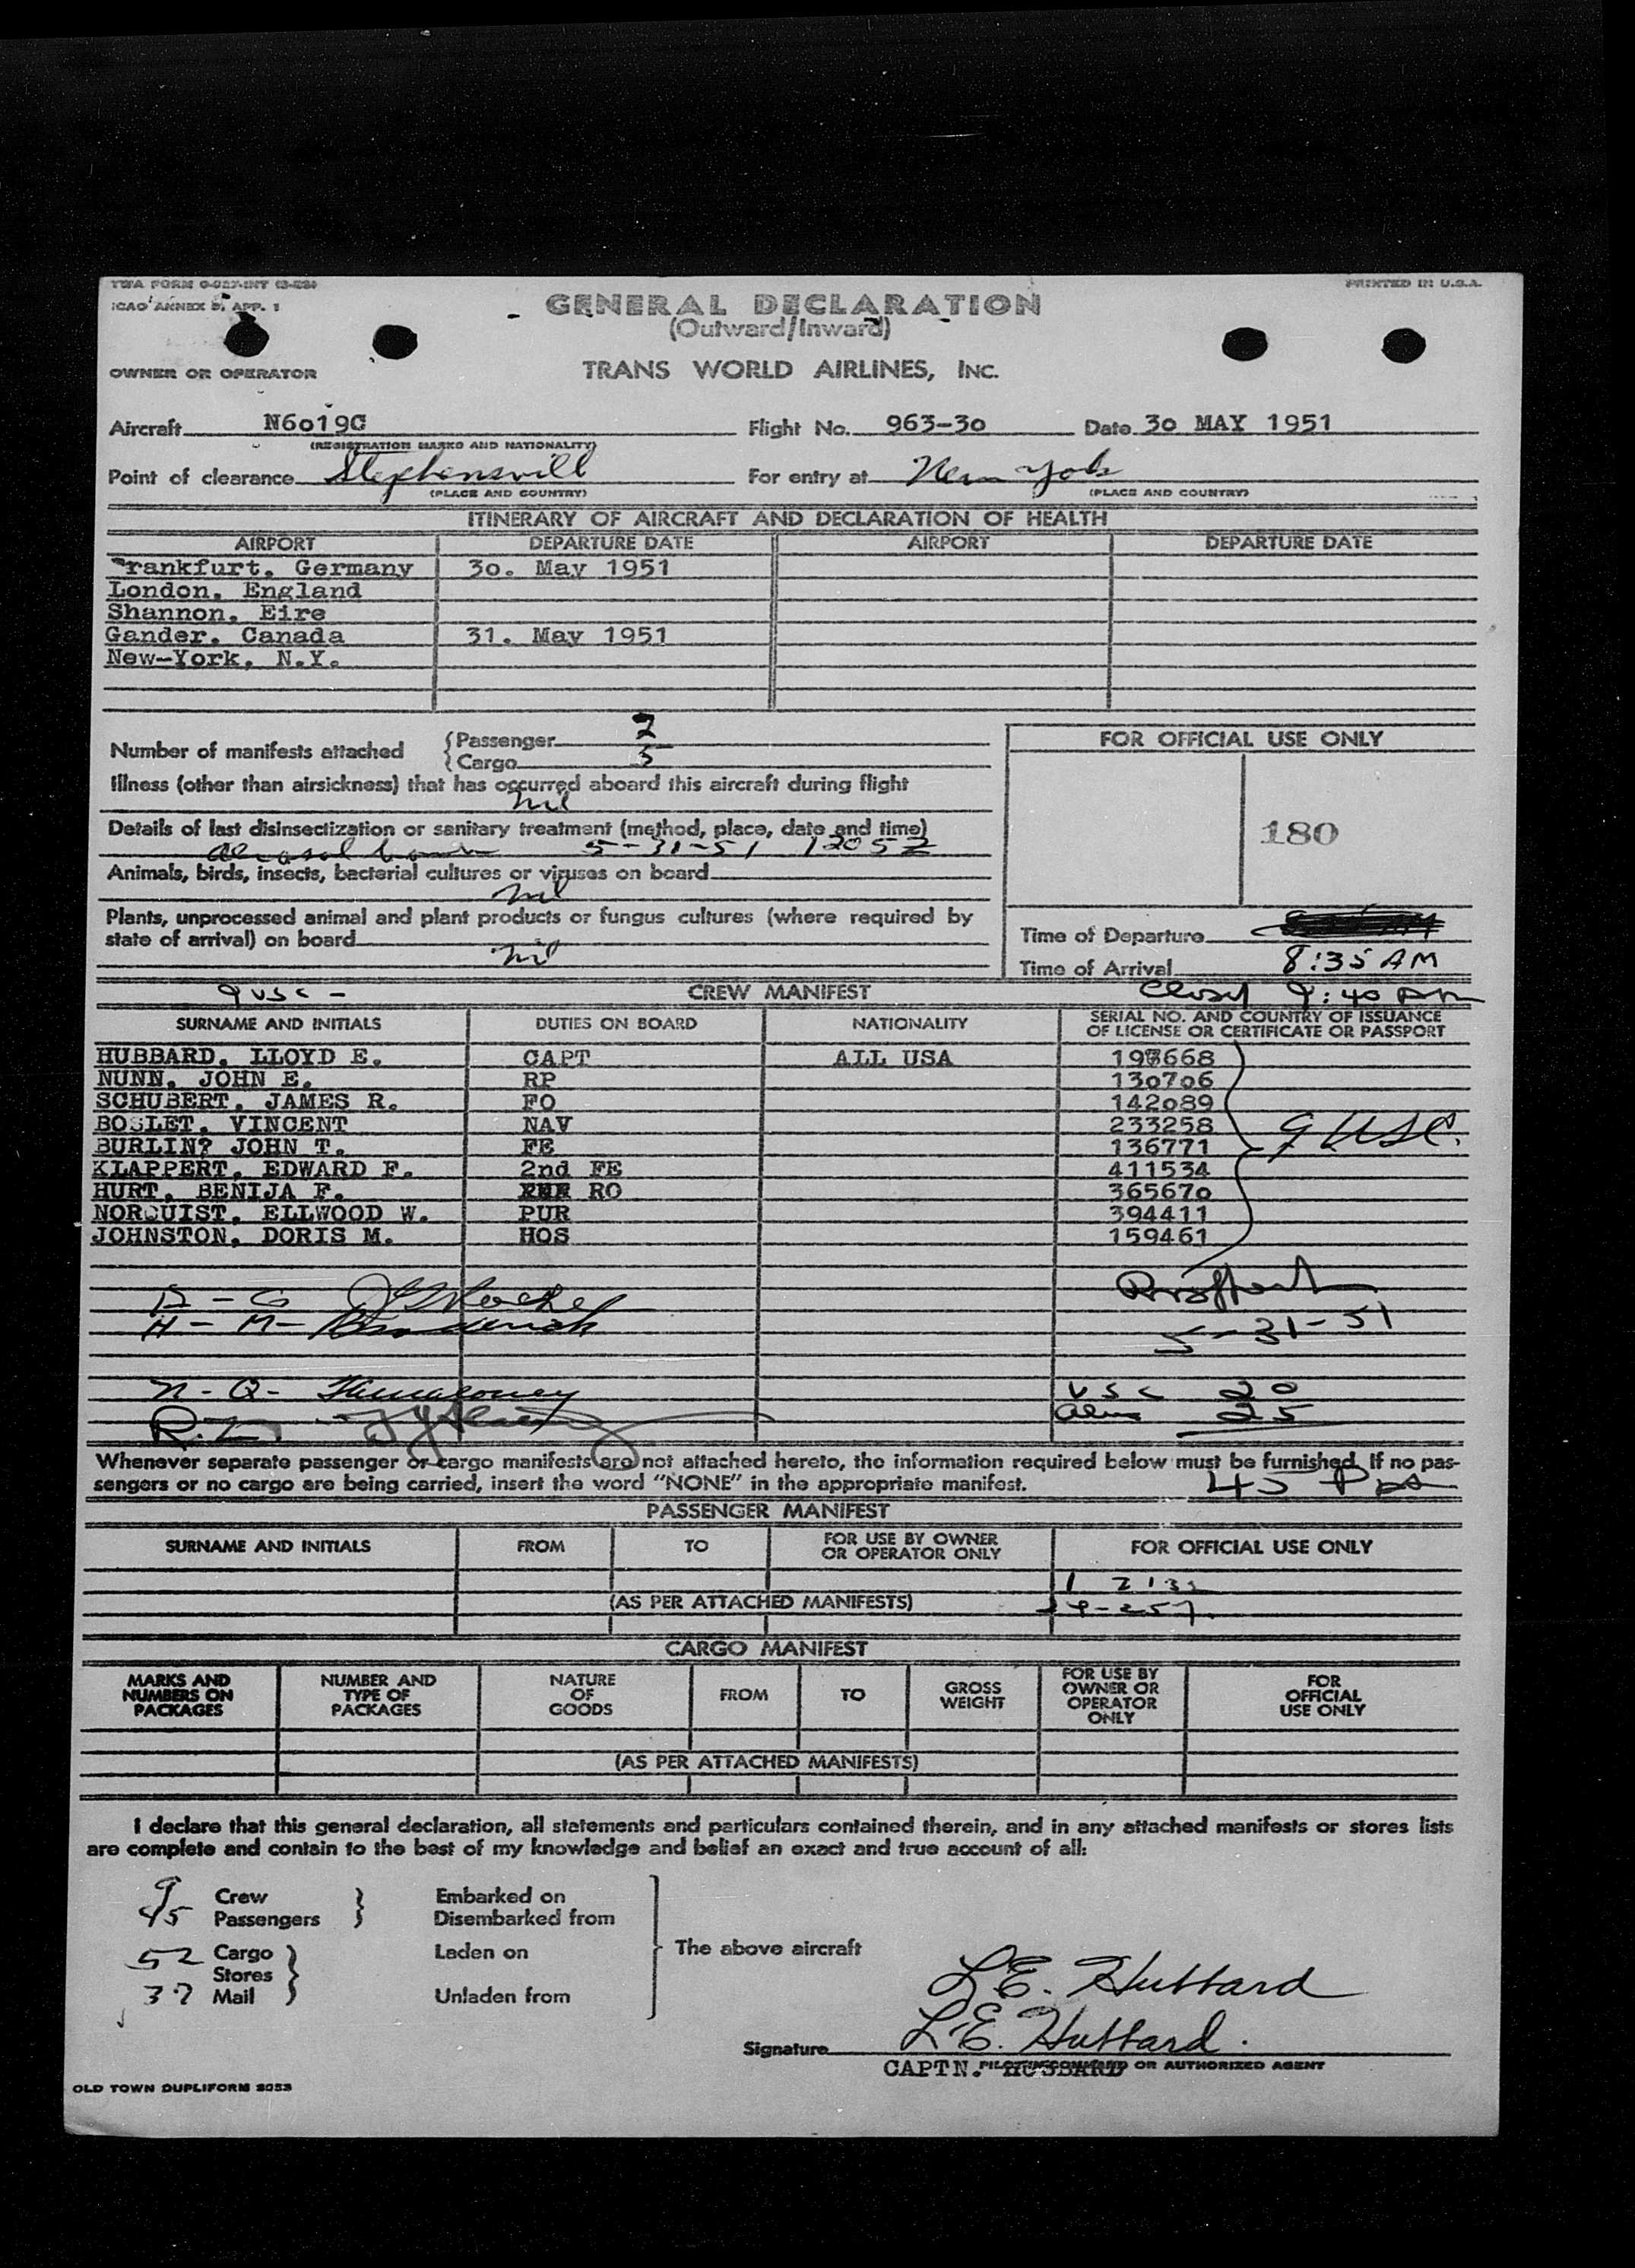 TWA FORM 0-027-INT
PRINTED IN U.S.A.
ICAO ANNEX 9, APP. 1
GENERAL DECLARATION
(Outward/Inward)
OWNER OR OPERATOR TRANS WORLD AIRLINES, INC.
Aircraft N6o19C Flight No. 963-3o Date 3o MAY 1951
(REGISTRATION MARKS AND NATIONALITY)
Point of clearance Stephensvill For entry at New York
(PLACE AND COUNTRY) (PLACE AND COUNTRY)
ITINERARY OF AIRCRAFT AND DECLARATION OF HEALTH
AIRPORT DEPARTURE DATE AIRPORT DEPARTURE DATE
Frankfurt, Germany 3o. May 1951
London, England
Shannon, Eire
Gander, Canada 31. May 1951
New-York, N.Y.
Number of manifests attached Passenger 2
Cargo 5
Illness (other than airsickness) that has occurred aboard this aircraft during flight
nil
Details of last disinsectization or sanitary treatment (method, place, date and time)
aerosol bomb 5-31-51 1205Z
Animals, birds, insects, bacterial cultures or viruses on board
nil
Plants, unprocessed animal and plant products or fungus cultures (where required by
state of arrival) on board
nil
FOR OFFICIAL USE ONLY
180
Time of Departure
Time of Arrival 8:35 AM
9 USC - CREW MANIFEST Closed 9:40 AM
SURNAME AND INITIALS DUTIES ON BOARD NATIONALITY SERIAL NO. AND COUNTRY OF ISSUANCE
OF LICENSE OR CERTIFICATE OR PASSPORT
HUBBARD, LLOYD E. CAPT ALL USA
NUNN, JOHN E. RP 13o7o6
SCHUBERT, JAMES R. FO 142o89
BOSLET, VINCENT NAV 233258
BURLIN? JOHN T. FE 136771 9 USC.
KLAPPERT, EDWARD F. 2nd FE 411534
HURT, BENIJA F. RO 36567o
NORQUIST, ELLWOOD W. PUR 394411
JOHNSTON, DORIS M. HOS 159461
A - G
H - M -
5-31-51
N - Q -
USC 20
R-Z
Alien 25
Whenever separate passenger or cargo manifests are not attached hereto, the information required below must be furnished. If no pas-
sengers or no cargo are being carried, insert the word "NONE" in the appropriate manifest.
45
PASSENGER MANIFEST
SURNAME AND INITIALS FROM TO FOR USE BY OWNER
OR OPERATOR ONLY FOR OFFICIAL USE ONLY
(AS PER ATTACHED MANIFESTS)
CARGO MANIFEST
MARKS AND
NUMBERS ON
PACKAGES NUMBER AND
TYPE OF
PACKAGES NATURE
OF
GOODS FROM TO GROSS
WEIGHT FOR USE BY
OWNER OR
OPERATOR
ONLY FOR
OFFICIAL
USE ONLY
(AS PER ATTACHED MANIFESTS)
I declare that this general declaration, all statements and particulars contained therein, and in any attached manifests or stores lists
are complete and contain to the best of my knowledge and belief an exact and true account of all:
9 Crew Embarked on
45 Passengers Disembarked from
52 Cargo Laden on The above aircraft
Stores
37 Mail Unladen from
L.E. Hubbard
Signature L.E. Hubbard.
CAPTN. HUBBARD PILOT IN COMMAND OR AUTHORIZED AGENT
OLD TOWN DUPLIFORM 2053